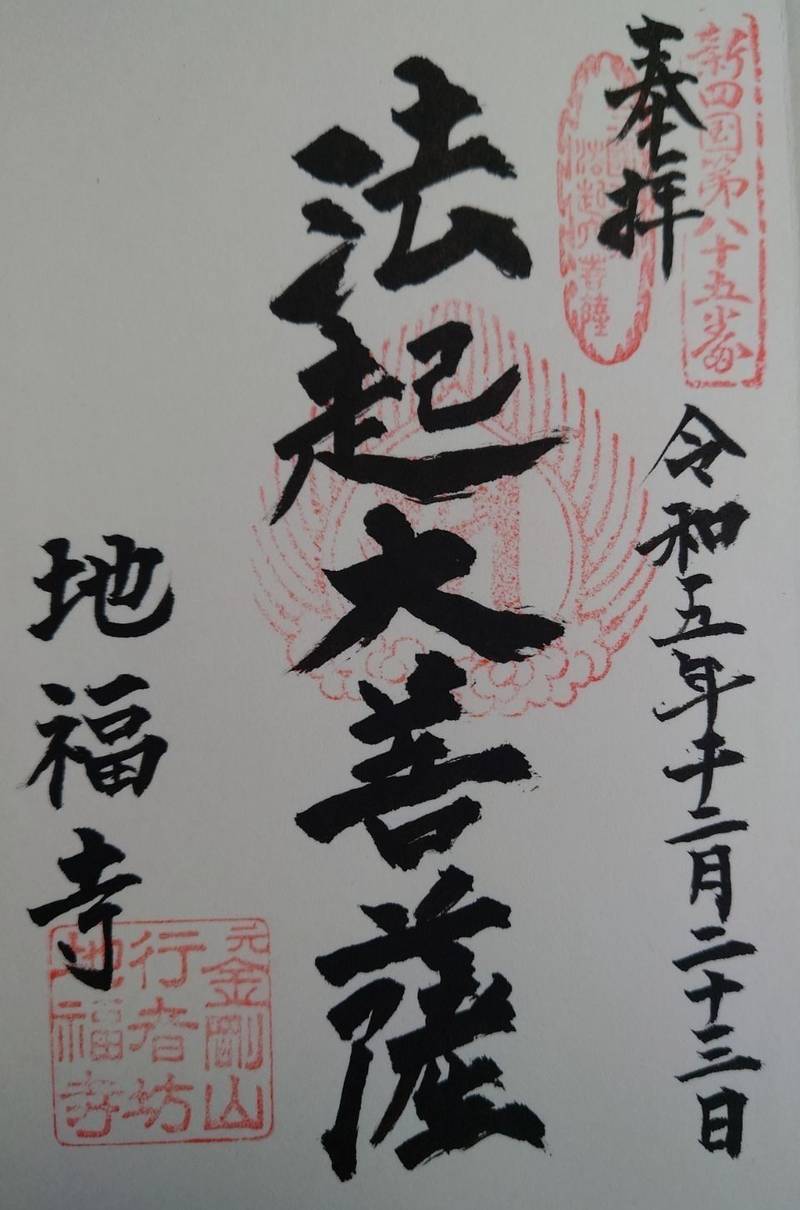 新四国第八十五番
奉拝
令和五年十二月二十三日
法起大菩薩
地福寺
元金剛山
行者坊
地福寺